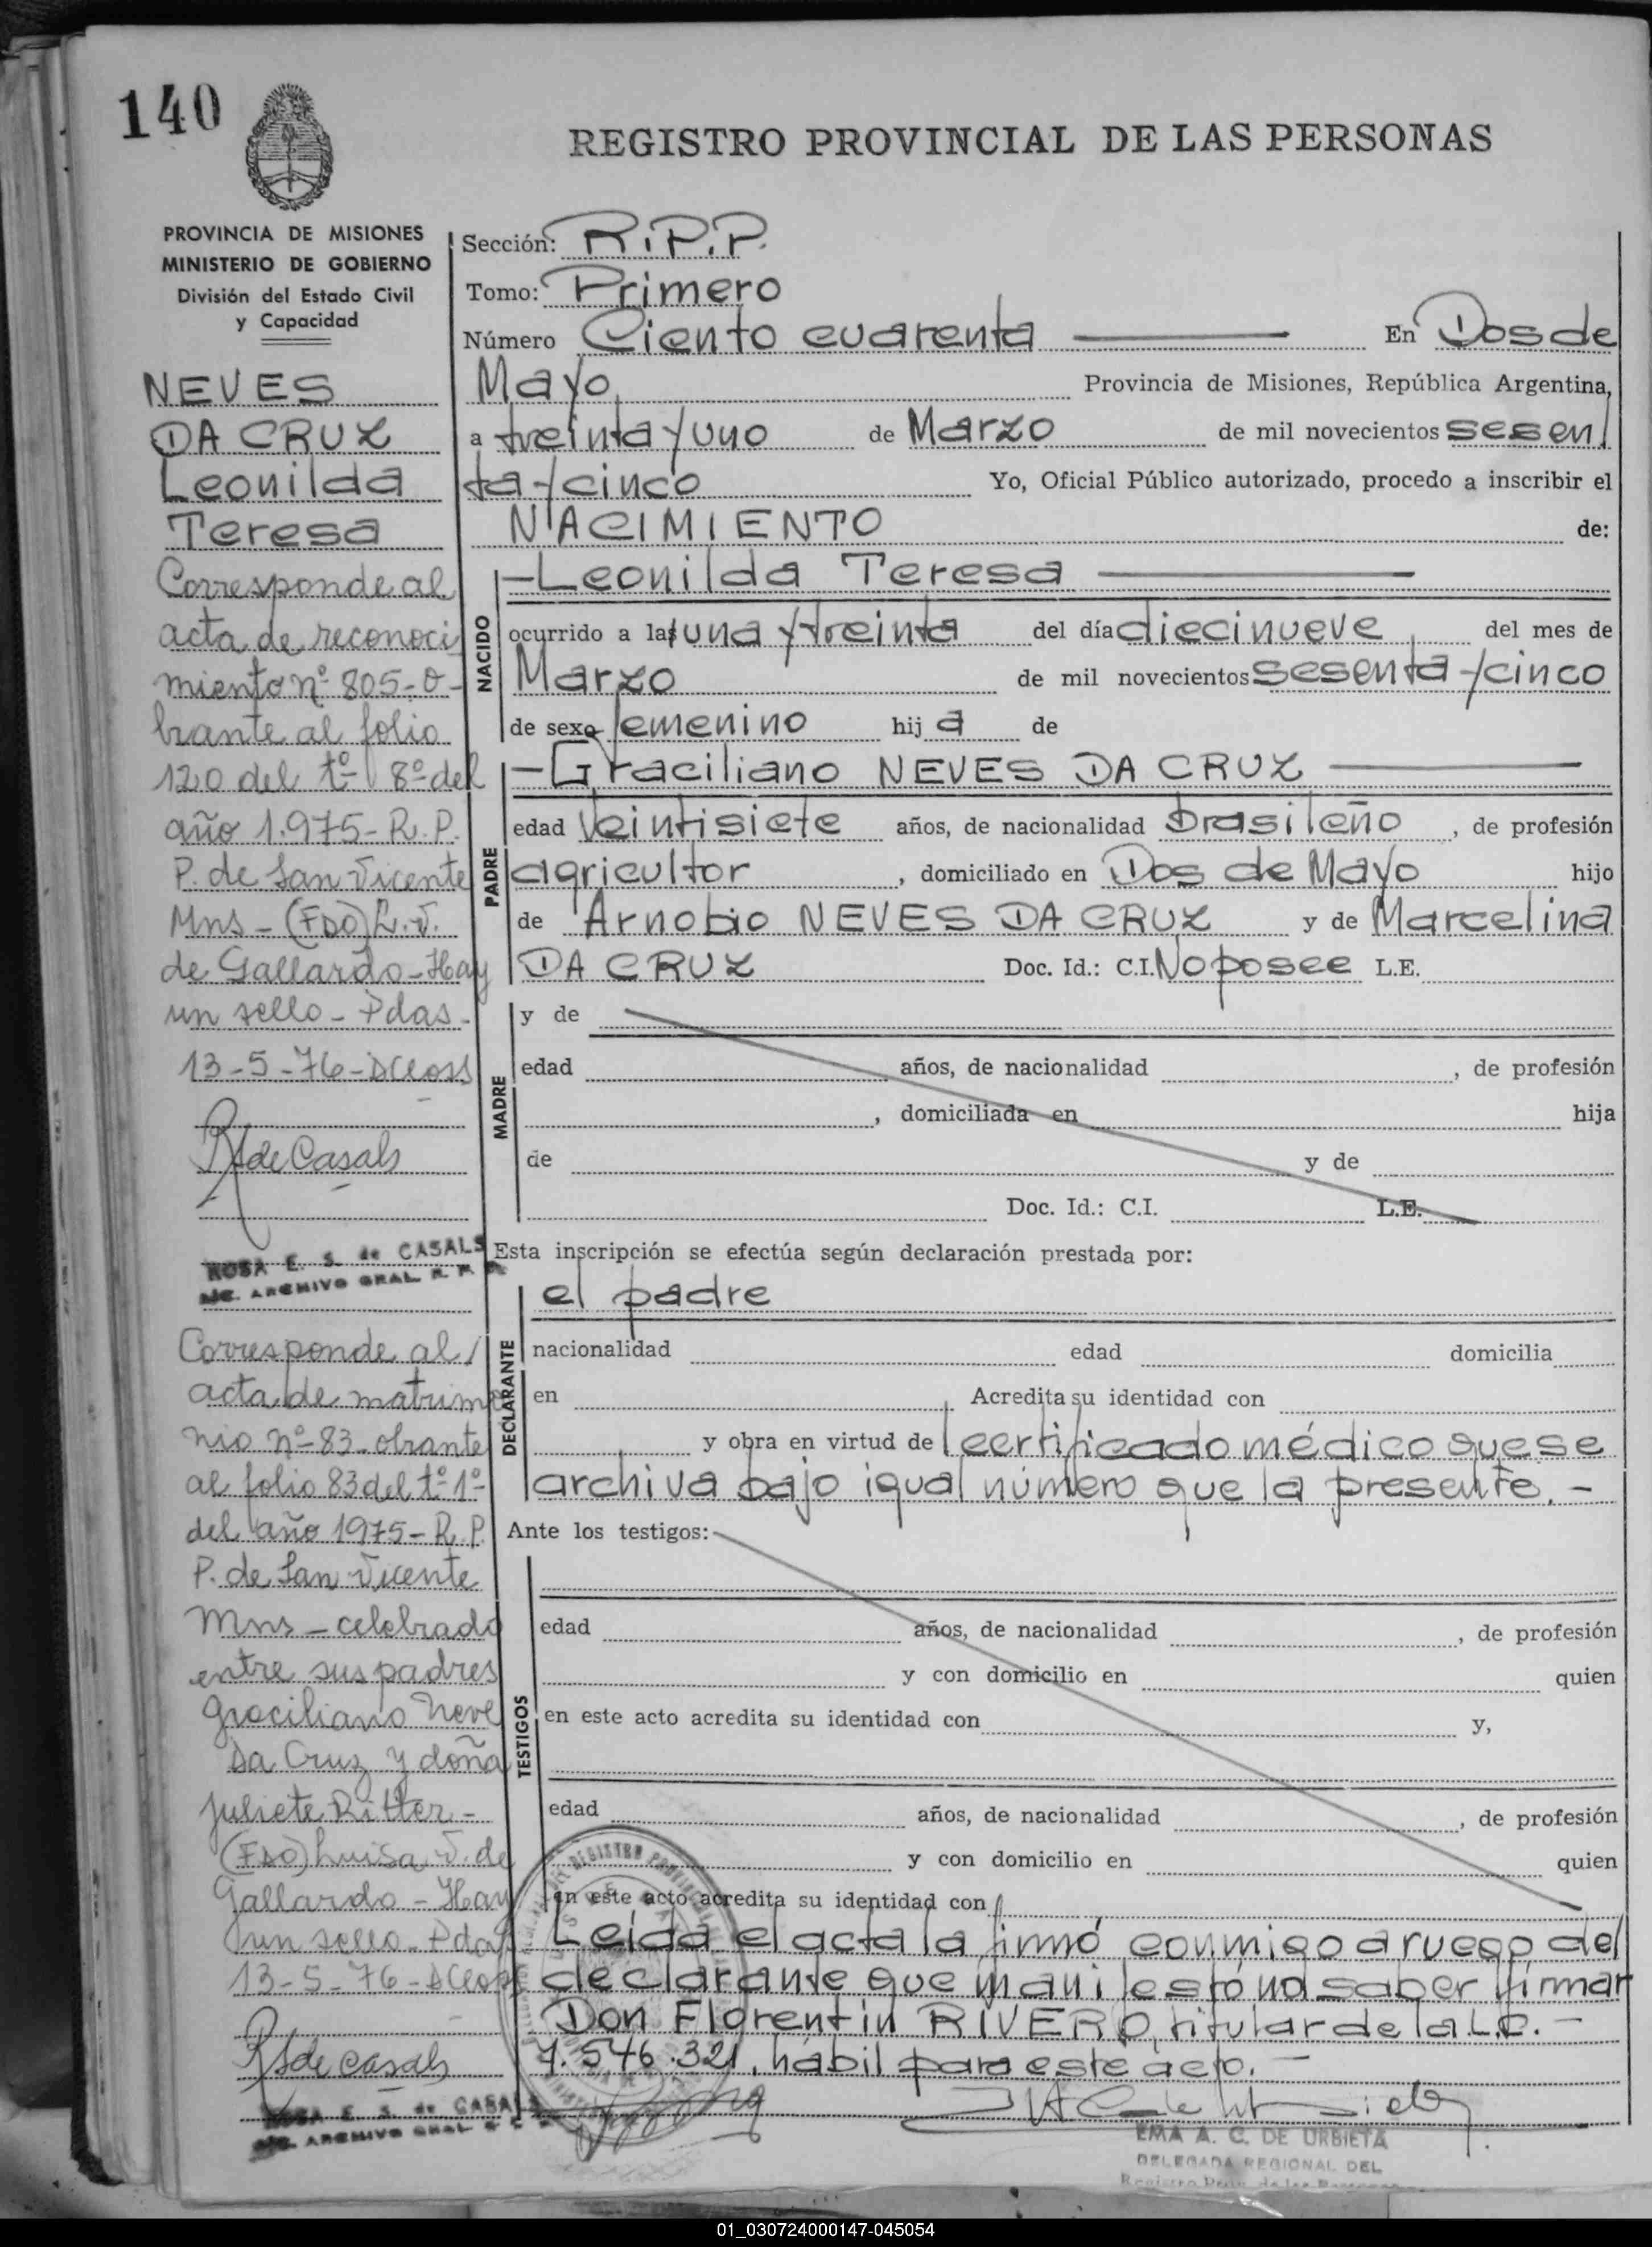 140
REGISTRO PROVINCIAL DE LAS PERSONAS
PROVINCIA DE MISIONES
MINISTERIO DE GOBIERNO
División del Estado Civil
y Capacidad
NEVES
DA CRUZ
Leonilda
Teresa
Corresponde al
acta de reconoci
miento nº 805-o-
brante al folio
120 del tº 8º del
año 1.975- R.P.
P. de San Vicente
Mns - (FDO) L.V.
de Gallardo - Hay
un sello - Pdas.
13-5-76-
R S de Casals
ROSA E. S. de CASALS
ARCHIVO GRAL. R. P.
Corresponde al /
acta de matrimo
nio nº 83 obrante
al folio 83 del tº 1º
del año 1975- R.P.
P. de San Vicente
Mns - celebrado
entre sus padres
Graciliano Neve
Da Cruz y doña
Juliete Ritter -
(FDO) Luisa V. de
Gallardo - Hay
un sello - Pdas
13-5-76-
R S de Casals
ROSA E. S. de CASALS
ARCHIVO GRAL
Sección: R.P.P.
Tomo: Primero
Número Ciento cuarenta En Dos de
Mayo Provincia de Misiones, República Argentina,
a treinta y uno de Marzo de mil novecientos sesen/
ta y cinco Yo, Oficial Público autorizado, procedo a inscribir el
NACIMIENTO de:
NACIDO
-Leonilda Teresa
ocurrido a las una y treinta del día diecinueve del mes de
Marzo de mil novecientos sesenta y cinco
de sexo femenino hij a de
PADRE
-Graciliano NEVES DA CRUZ
edad veintisiete años, de nacionalidad brasileño, de profesión
agricultor, domiciliado en Dos de Mayo hijo
de Arnobio NEVES DA CRUZ y de Marcelina
DA CRUZ Doc. Id.: C.I. No posee L.E.
MADRE
y de
edad años, de nacionalidad , de profesión
, domiciliada en hija
de y de
Doc. Id.: C.I. L.E.
Esta inscripción se efectúa según declaración prestada por:
DECLARANTE
el padre
nacionalidad edad domicilia
en . Acredita su identidad con
y obra en virtud de certificado médico que se
archiva bajo igual número que la presente.-
Ante los testigos:
TESTIGOS
edad años, de nacionalidad , de profesión
y con domicilio en quien
en este acto acredita su identidad con y,
edad años, de nacionalidad , de profesión
y con domicilio en quien
en este acto acredita su identidad con
Leída el acta la firmó conmigo a ruego del
declarante que manifestó no saber firmar
Don Florentin RIVERO, titular de la L.E.-
7.546.321, hábil para este acto.-
EMA A. C. DE URBIETA
DELEGADA REGIONAL DEL
Registro Prov. de las Personas
01_030724000147-045054